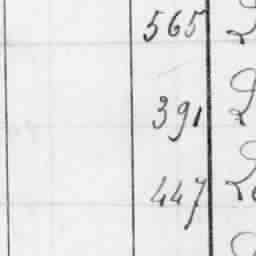 565
391
447